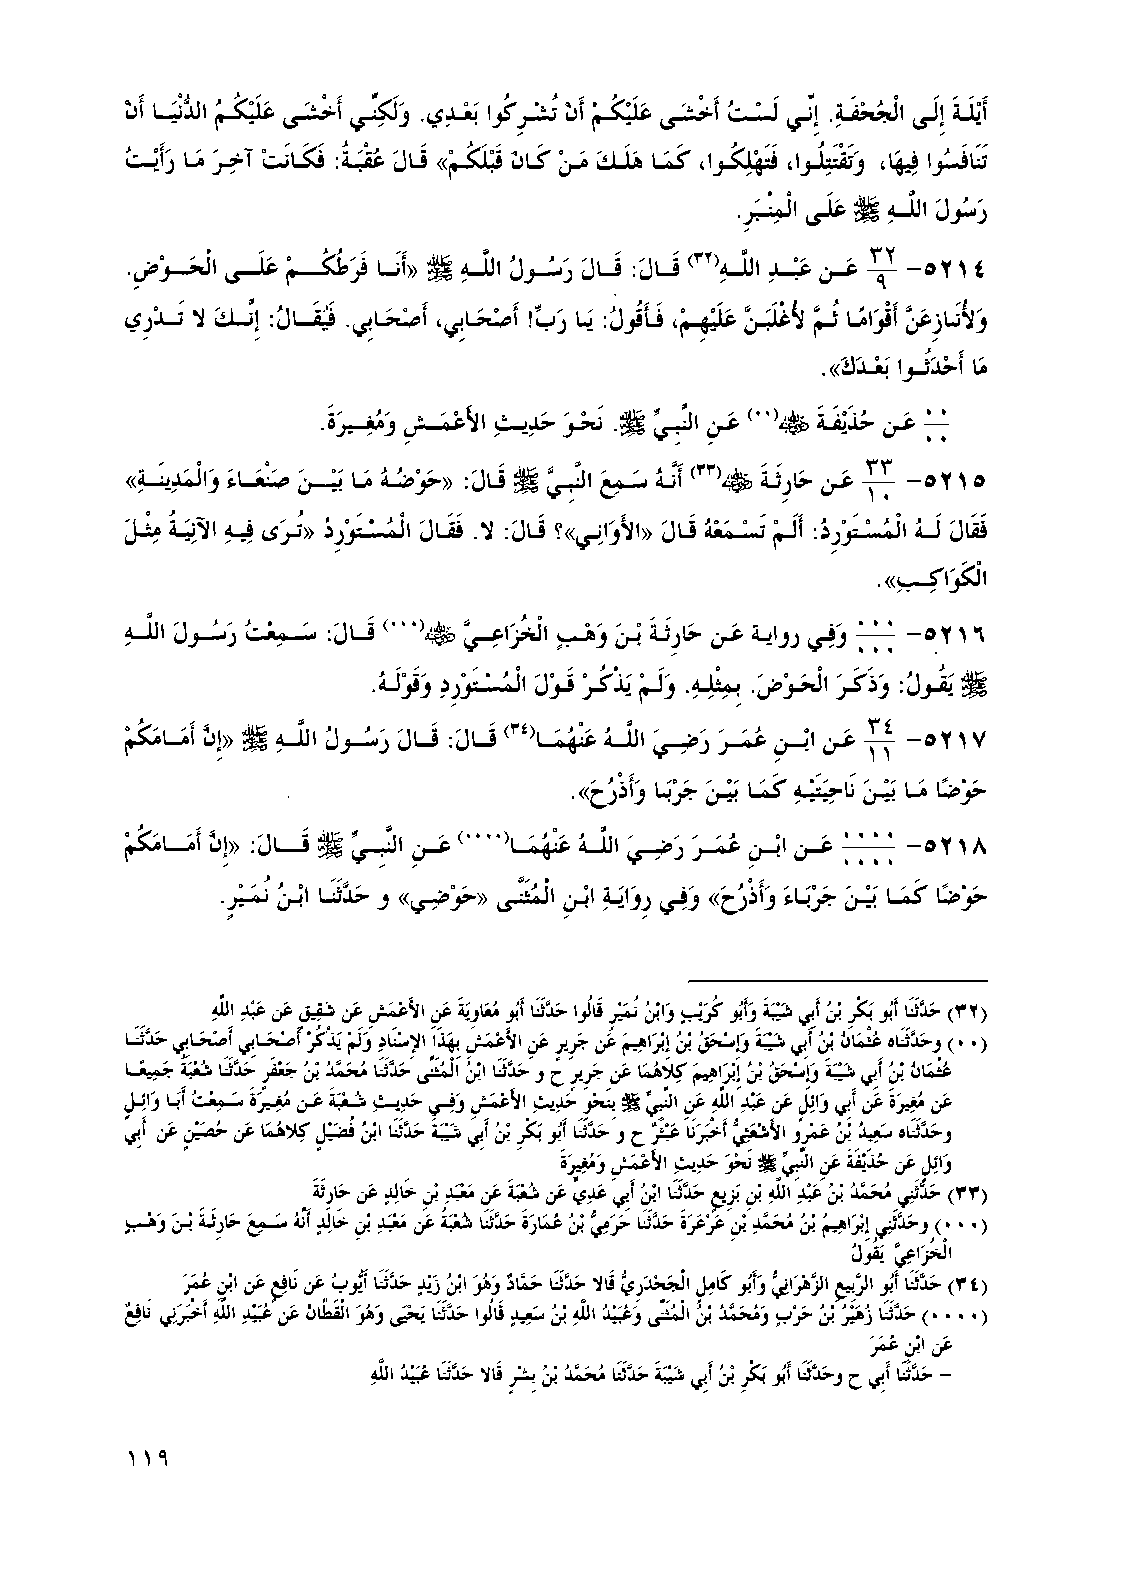 أَيْلَةَ إِلَى الْجُحْفَةِ. إِنِّي لَسْتُ أَخْشَى عَلَيْكُمْ أَنْ تُشْرِكُوا بَعْدِي. وَلَكِنِّي أَخْشَى عَلَيْكُمُ الدُّنْيَا أَنْ
تَنَافَسُوا فِيهَا، وَتَقْتَتِلُوا، فَتَهْلِكُوا، كَمَا هَلَكَ مَنْ كَانَ قَبْلَكُمْ» قَالَ عُقْبَةُ: فَكَانَتْ آخِرَ مَا رَأَيْتُ
رَسُولَ اللَّهِ ﷺ عَلَى الْمِنْبَرِ.
٥٢١٤- ٣٢/٩ عَن عَبْدِ اللَّهِ(٣٢) قَالَ: قَالَ رَسُولُ اللَّهِ ﷺ «أَنَا فَرَطُكُمْ عَلَى الْحَوْضِ.
وَلَأُنَازِعَنَّ أَقْوَامًا ثُمَّ لَأُغْلَبَنَّ عَلَيْهِمْ، فَأَقُولُ: يَا رَبِّ! أَصْحَابِي، أَصْحَابِي. فَيُقَالُ: إِنَّكَ لا تَدْرِي
مَا أَحْدَثُوا بَعْدَكَ».
٠٠/٠٠ عَن حُذَيْفَةَ ﷺ(٠٠) عَنِ النَّبِيِّ ﷺ. نَحْوَ حَدِيثِ الأَعْمَشِ وَمُغِيرَةَ.
٥٢١٥- ٣٣/١٠ عَن حَارِثَةَ ﷺ(٣٣) أَنَّهُ سَمِعَ النَّبِيَّ ﷺ قَالَ: «حَوْضُهُ مَا بَيْنَ صَنْعَاءَ وَالْمَدِينَةِ»
فَقَالَ لَهُ الْمُسْتَوْرِدُ: أَلَمْ تَسْمَعْهُ قَالَ «الأَوَانِي»؟ قَالَ: لا. فَقَالَ الْمُسْتَوْرِدُ «تُرَى فِيهِ الآنِيَةُ مِثْلَ
الْكَوَاكِبِ».
٥٢١٦- ٠٠٠/٠٠٠ وَفِي رواية عَن حَارِثَةَ بْنَ وَهْبٍ الْخُزَاعِيَّ ﷺ(٠٠٠) قَالَ: سَمِعْتُ رَسُولَ اللَّهِ
ﷺ يَقُولُ: وَذَكَرَ الْحَوْضَ. بِمِثْلِهِ. وَلَمْ يَذْكُرْ قَوْلَ الْمُسْتَوْرِدِ وَقَوْلَهُ.
٥٢١٧- ٣٤/١١ عَن ابْنِ عُمَرَ رَضِيَ اللَّهُ عَنْهُمَا(٣٤) قَالَ: قَالَ رَسُولُ اللَّهِ ﷺ «إِنَّ أَمَامَكُمْ
حَوْضًا مَا بَيْنَ نَاحِيَتَيْهِ كَمَا بَيْنَ جَرْبَا وَأَذْرُحَ».
٥٢١٨- ٠٠٠٠/٠٠٠٠ عَن ابْنِ عُمَرَ رَضِيَ اللَّهُ عَنْهُمَا(٠٠٠٠) عَنِ النَّبِيِّ ﷺ قَالَ: «إِنَّ أَمَامَكُمْ
حَوْضًا كَمَا بَيْنَ جَرْبَاءَ وَأَذْرُحَ» وَفِي رِوَايَةِ ابْنِ الْمُثَنَّى «حَوْضِي» و حَدَّثَنَا ابْنُ نُمَيْرٍ.
(٣٢) حَدَّثَنَا أَبُو بَكْرِ بْنُ أَبِي شَيْبَةَ وَأَبُو كُرَيْبٍ وَابْنُ نُمَيْرٍ قَالُوا حَدَّثَنَا أَبُو مُعَاوِيَةَ عَنِ الأَعْمَشِ عَن شَقِيقٍ عَن عَبْدِ اللَّهِ
(٠٠) وحَدَّثَنَاه عُثْمَانُ بْنُ أَبِي شَيْبَةَ وَإِسْحَقُ بْنُ إِبْرَاهِيمَ عَن جَرِيرٍ عَنِ الأَعْمَشِ بِهَذَا الإِسْنَادِ وَلَمْ يَذْكُرْ أَصْحَابِي أَصْحَابِي حَدَّثَنَا
عُثْمَانُ بْنُ أَبِي شَيْبَةَ وَإِسْحَقُ بْنُ إِبْرَاهِيمَ كِلاهُمَا عَن جَرِيرٍ ح و حَدَّثَنَا ابْنُ الْمُثَنَّى حَدَّثَنَا مُحَمَّدُ بْنُ جَعْفَرٍ حَدَّثَنَا شُعْبَةُ جَمِيعًا
عَن مُغِيرَةَ عَن أَبِي وَائِلٍ عَن عَبْدِ اللَّهِ عَنِ النَّبِيِّ ﷺ بِنَحْوِ حَدِيثِ الأَعْمَشِ وَفِي حَدِيثِ شُعْبَةَ عَن مُغِيرَةَ سَمِعْتُ أَبَا وَائِلٍ
وحَدَّثَنَاه سَعِيدُ بْنُ عَمْرٍو الأَشْعَثِيُّ أَخْبَرَنَا عَبْثَرٌ ح و حَدَّثَنَا أَبُو بَكْرِ بْنُ أَبِي شَيْبَةَ حَدَّثَنَا ابْنُ فُضَيْلٍ كِلاهُمَا عَن حُصَيْنٍ عَن أَبِي
وَائِلٍ عَن حُذَيْفَةَ عَنِ النَّبِيِّ ﷺ نَحْوَ حَدِيثِ الأَعْمَشِ وَمُغِيرَةَ
(٣٣) حَدَّثَنِي مُحَمَّدُ بْنُ عَبْدِ اللَّهِ بْنِ بَزِيعٍ حَدَّثَنَا ابْنُ أَبِي عَدِيٍّ عَن شُعْبَةَ عَن مَعْبَدِ بْنِ خَالِدٍ عَن حَارِثَةَ
(٠٠٠) وحَدَّثَنِي إِبْرَاهِيمُ بْنُ مُحَمَّدِ بْنِ عَرْعَرَةَ حَدَّثَنَا حَرَمِيُّ بْنُ عُمَارَةَ حَدَّثَنَا شُعْبَةُ عَن مَعْبَدِ بْنِ خَالِدٍ أَنَّهُ سَمِعَ حَارِثَةَ بْنَ وَهْبٍ
الْخُزَاعِيَّ يَقُولُ
(٣٤) حَدَّثَنَا أَبُو الرَّبِيعِ الزَّهْرَانِيُّ وَأَبُو كَامِلٍ الْجَحْدَرِيُّ قَالا حَدَّثَنَا حَمَّادٌ وَهُوَ ابْنُ زَيْدٍ حَدَّثَنَا أَيُّوبُ عَن نَافِعٍ عَن ابْنِ عُمَرَ
(٠٠٠٠) حَدَّثَنَا زُهَيْرُ بْنُ حَرْبٍ وَمُحَمَّدُ بْنُ الْمُثَنَّى وَعُبَيْدُ اللَّهِ بْنُ سَعِيدٍ قَالُوا حَدَّثَنَا يَحْيَى وَهُوَ الْقَطَّانُ عَن عُبَيْدِ اللَّهِ أَخْبَرَنِي نَافِعٌ
عَن ابْنِ عُمَرَ
– حَدَّثَنَا أَبِي ح وحَدَّثَنَا أَبُو بَكْرِ بْنُ أَبِي شَيْبَةَ حَدَّثَنَا مُحَمَّدُ بْنُ بِشْرٍ قَالا حَدَّثَنَا عُبَيْدُ اللَّهِ
١١٩